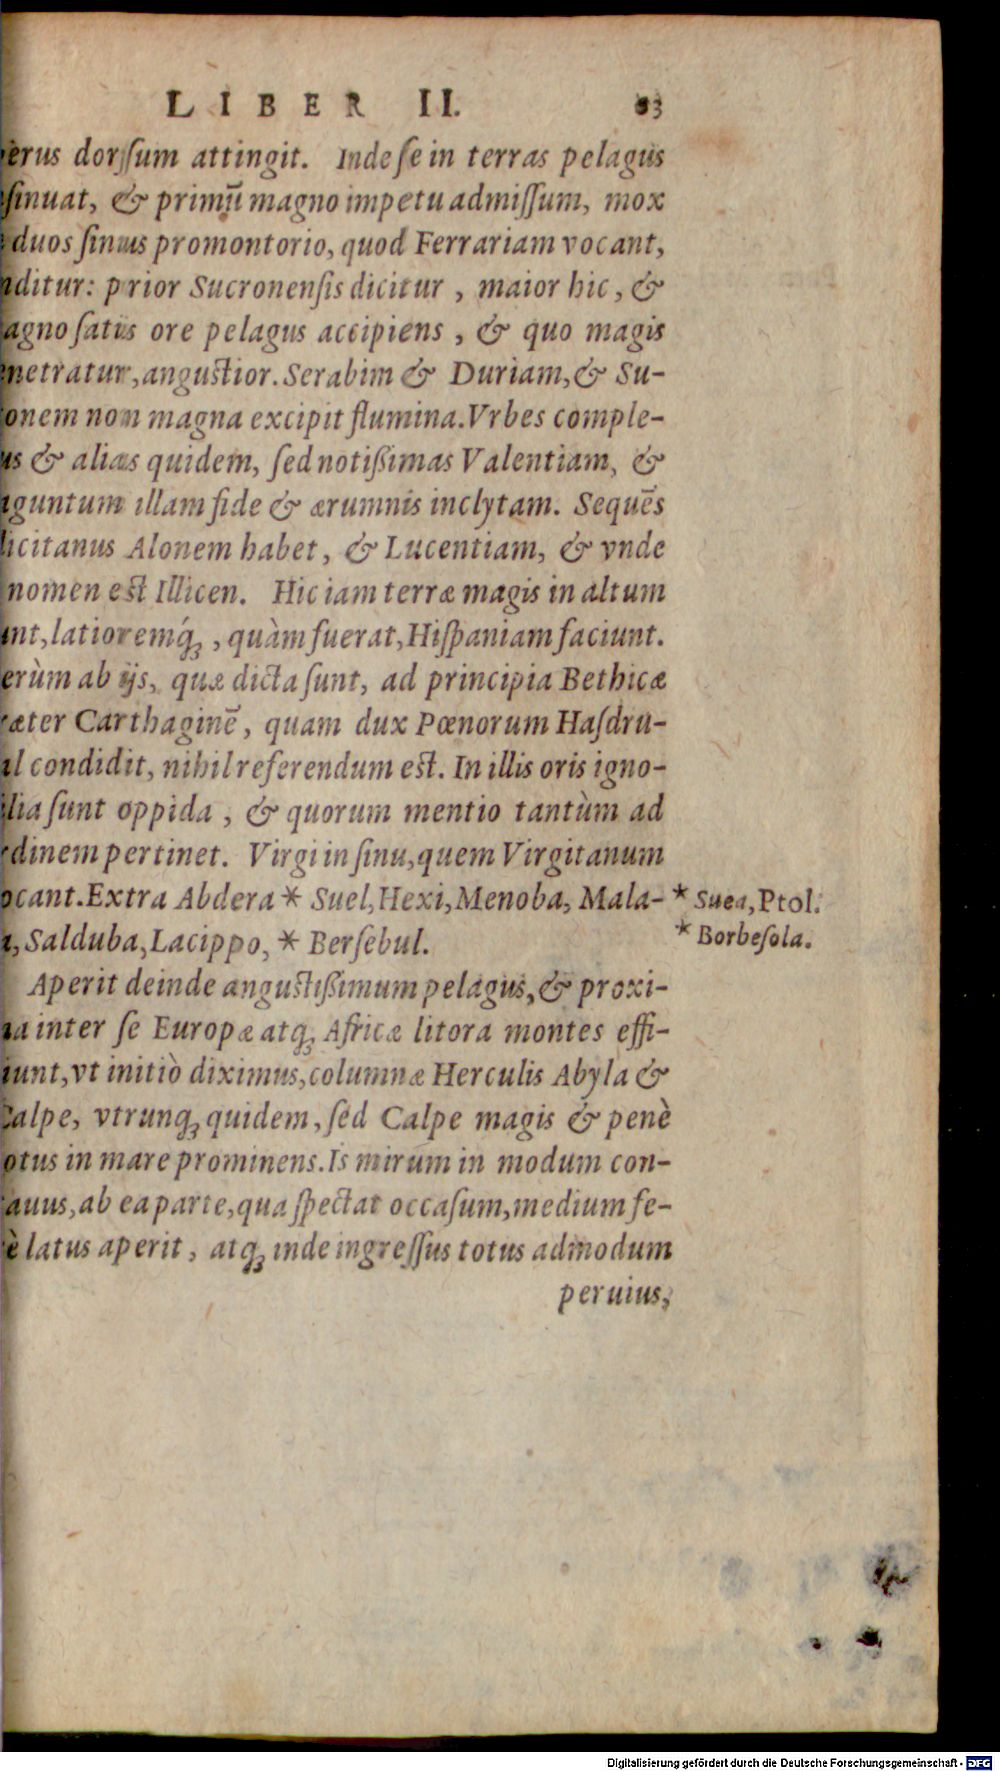 LIBER II. 83
erus dorsſum attingit. Inde ſe in terras pelagus
ſinuat, & primū magno impetu admiſſum, mox
duos ſinus promontorio, quod Ferrariam vocant,
nditur: prior Sucronenſis dicitur, maior hic, &
agno ſatis ore pelagus accipiens, & quo magis
netratur, anguſtior. Serabim & Duriam, & Su-
onem non magna excipit flumina. Vrbes comple-
us & alias quidem, ſed notißimas Valentiam, &
guntum illam fide & ærumnis inclytam. Sequēs
licitanus Alonem habet, & Lucentiam, & vnde
nomen eſt Illicen. Hic iam terræ magis in altum
unt, latioremq́ꝫ, quàm fuerat, Hiſpaniam faciunt.
erùm ab ijs, quæ dicta ſunt, ad principia Bethicæ
æter Carthaginē, quam dux Pœnorum Haſdru-
al condidit, nihil referendum eſt. In illis oris igno-
ilia ſunt oppida, & quorum mentio tantùm ad
rdinem pertinet. Virgi in ſinu, quem Virgitanum
ocant. Extra Abdera * Suel, Hexi, Menoba, Mala-
* Suea, Ptol.
a, Salduba, Lacippo, * Berſebul.
* Borbeſola.
Aperit deinde anguſtißimum pelagus, & proxi-
ma inter ſe Europæ atqꝫ Africæ litora montes effi-
iunt, vt initiò diximus, columnæ Herculis Abyla &
Calpe, vtrunqꝫ quidem, ſed Calpe magis & penè
otus in mare prominens. Is mirum in modum con-
auus, ab ea parte, qua ſpectat occaſum, medium fe-
rè latus aperit, atqꝫ inde ingreſſus totus admodum
peruius,
Digitalisierung gefördert durch die Deutsche Forschungsgemeinschaft - DFG